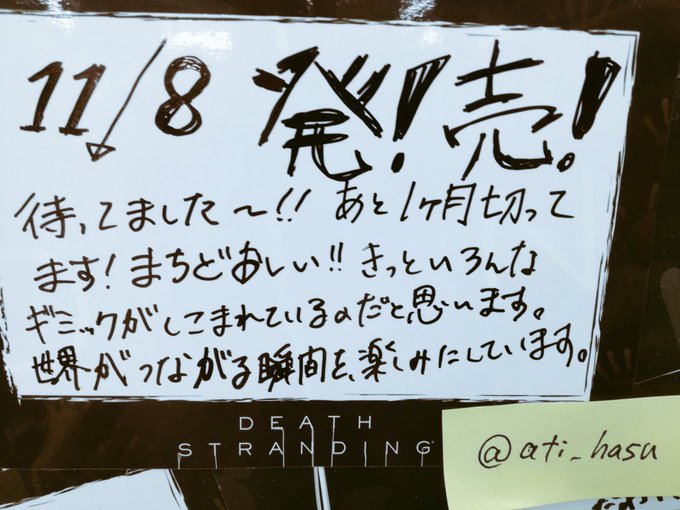 11/8 発!売!
待ってました〜!! あと1ヶ月切って
ます! まちどおしい!! きっといろんな
ギミックがしこまれているのだと思います。
世界がつながる瞬間を、楽しみにしています。
DEATH
STRANDING
@ati_hasu